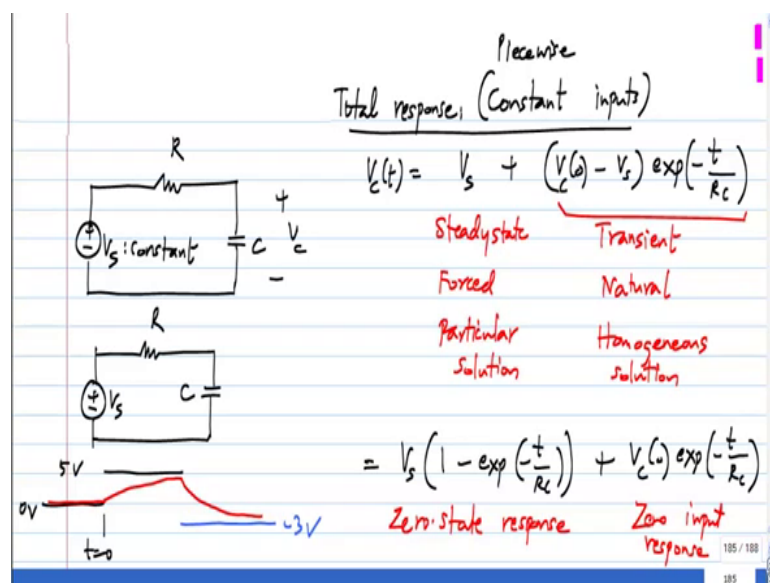 Piecewise
Total response, (Constant inputs)
V_c(t) = V_s + (V_c(0) - V_s) exp(-t/RC)
Steady state Transient
Forced Natural
Particular solution Homogeneous solution
R
V_s : constant
C
+
V_c
-
R
V_s
C
= V_s (1 - exp(-t/RC)) + V_c(0) exp(-t/RC)
Zero-state response Zero input response
5V
0V
-3V
t=0
185 / 188
185